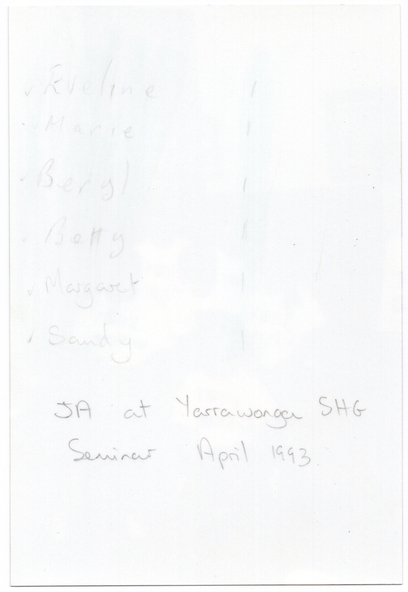 Eveline
Marie
Beryl
Betty
Margaret
Sandy
JA at Yarrawonga SHG
Seminar April 1993